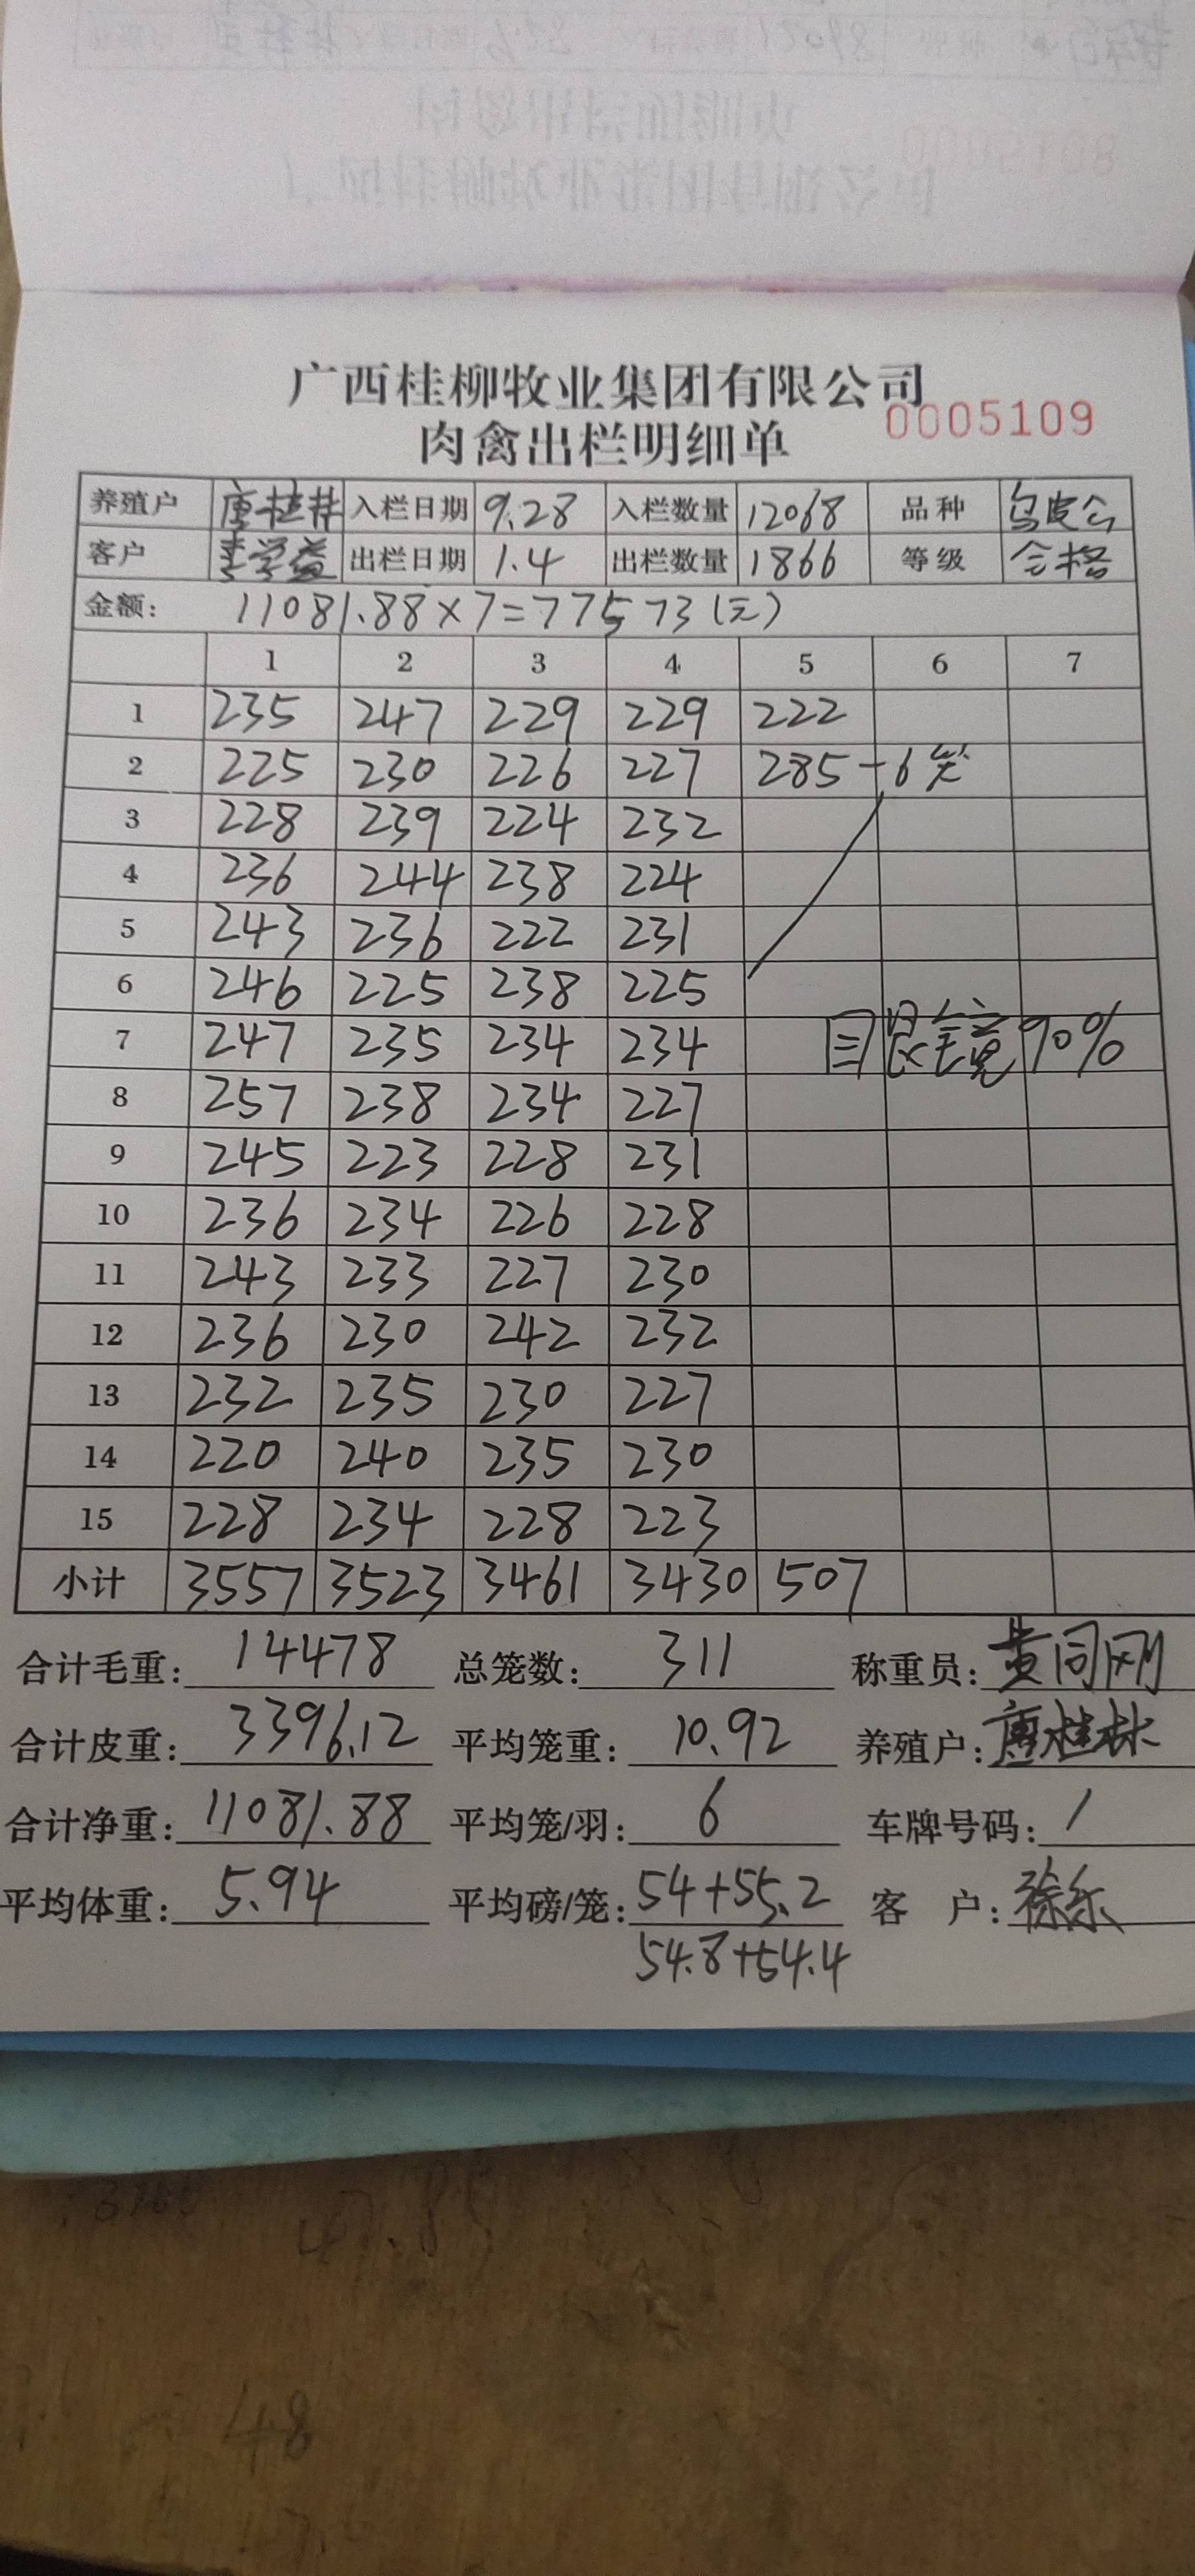 广西桂柳牧业集团有限公司
0005109
肉禽出栏明细单
养殖户 唐桂林 入栏日期 9.28 入栏数量 12068 品种 乌皮公
客户 李学益 出栏日期 1.4 出栏数量 1866 等级 合格
金额: 11081.88×7=77573(元)
1 2 3 4 5 6 7
1 235 247 229 229 222
2 225 230 226 227 285-6只
3 228 239 224 232
4 236 244 238 224
5 243 236 222 231
6 246 225 238 225
7 247 235 234 234 戴眼镜90%
8 257 238 234 227
9 245 223 228 231
10 236 234 226 228
11 243 233 227 230
12 236 230 242 232
13 232 235 230 227
14 220 240 235 230
15 228 234 228 223
小计 3557 3523 3461 3430 507
合计毛重: 14478 总笼数: 311 称重员: 黄同刚
合计皮重: 3396.12 平均笼重: 10.92 养殖户: 唐桂林
合计净重: 11081.88 平均笼/羽: 6 车牌号码: /
平均体重: 5.94 平均磅/笼: 54+55.2 客 户: 徐乐
54.8+54.4